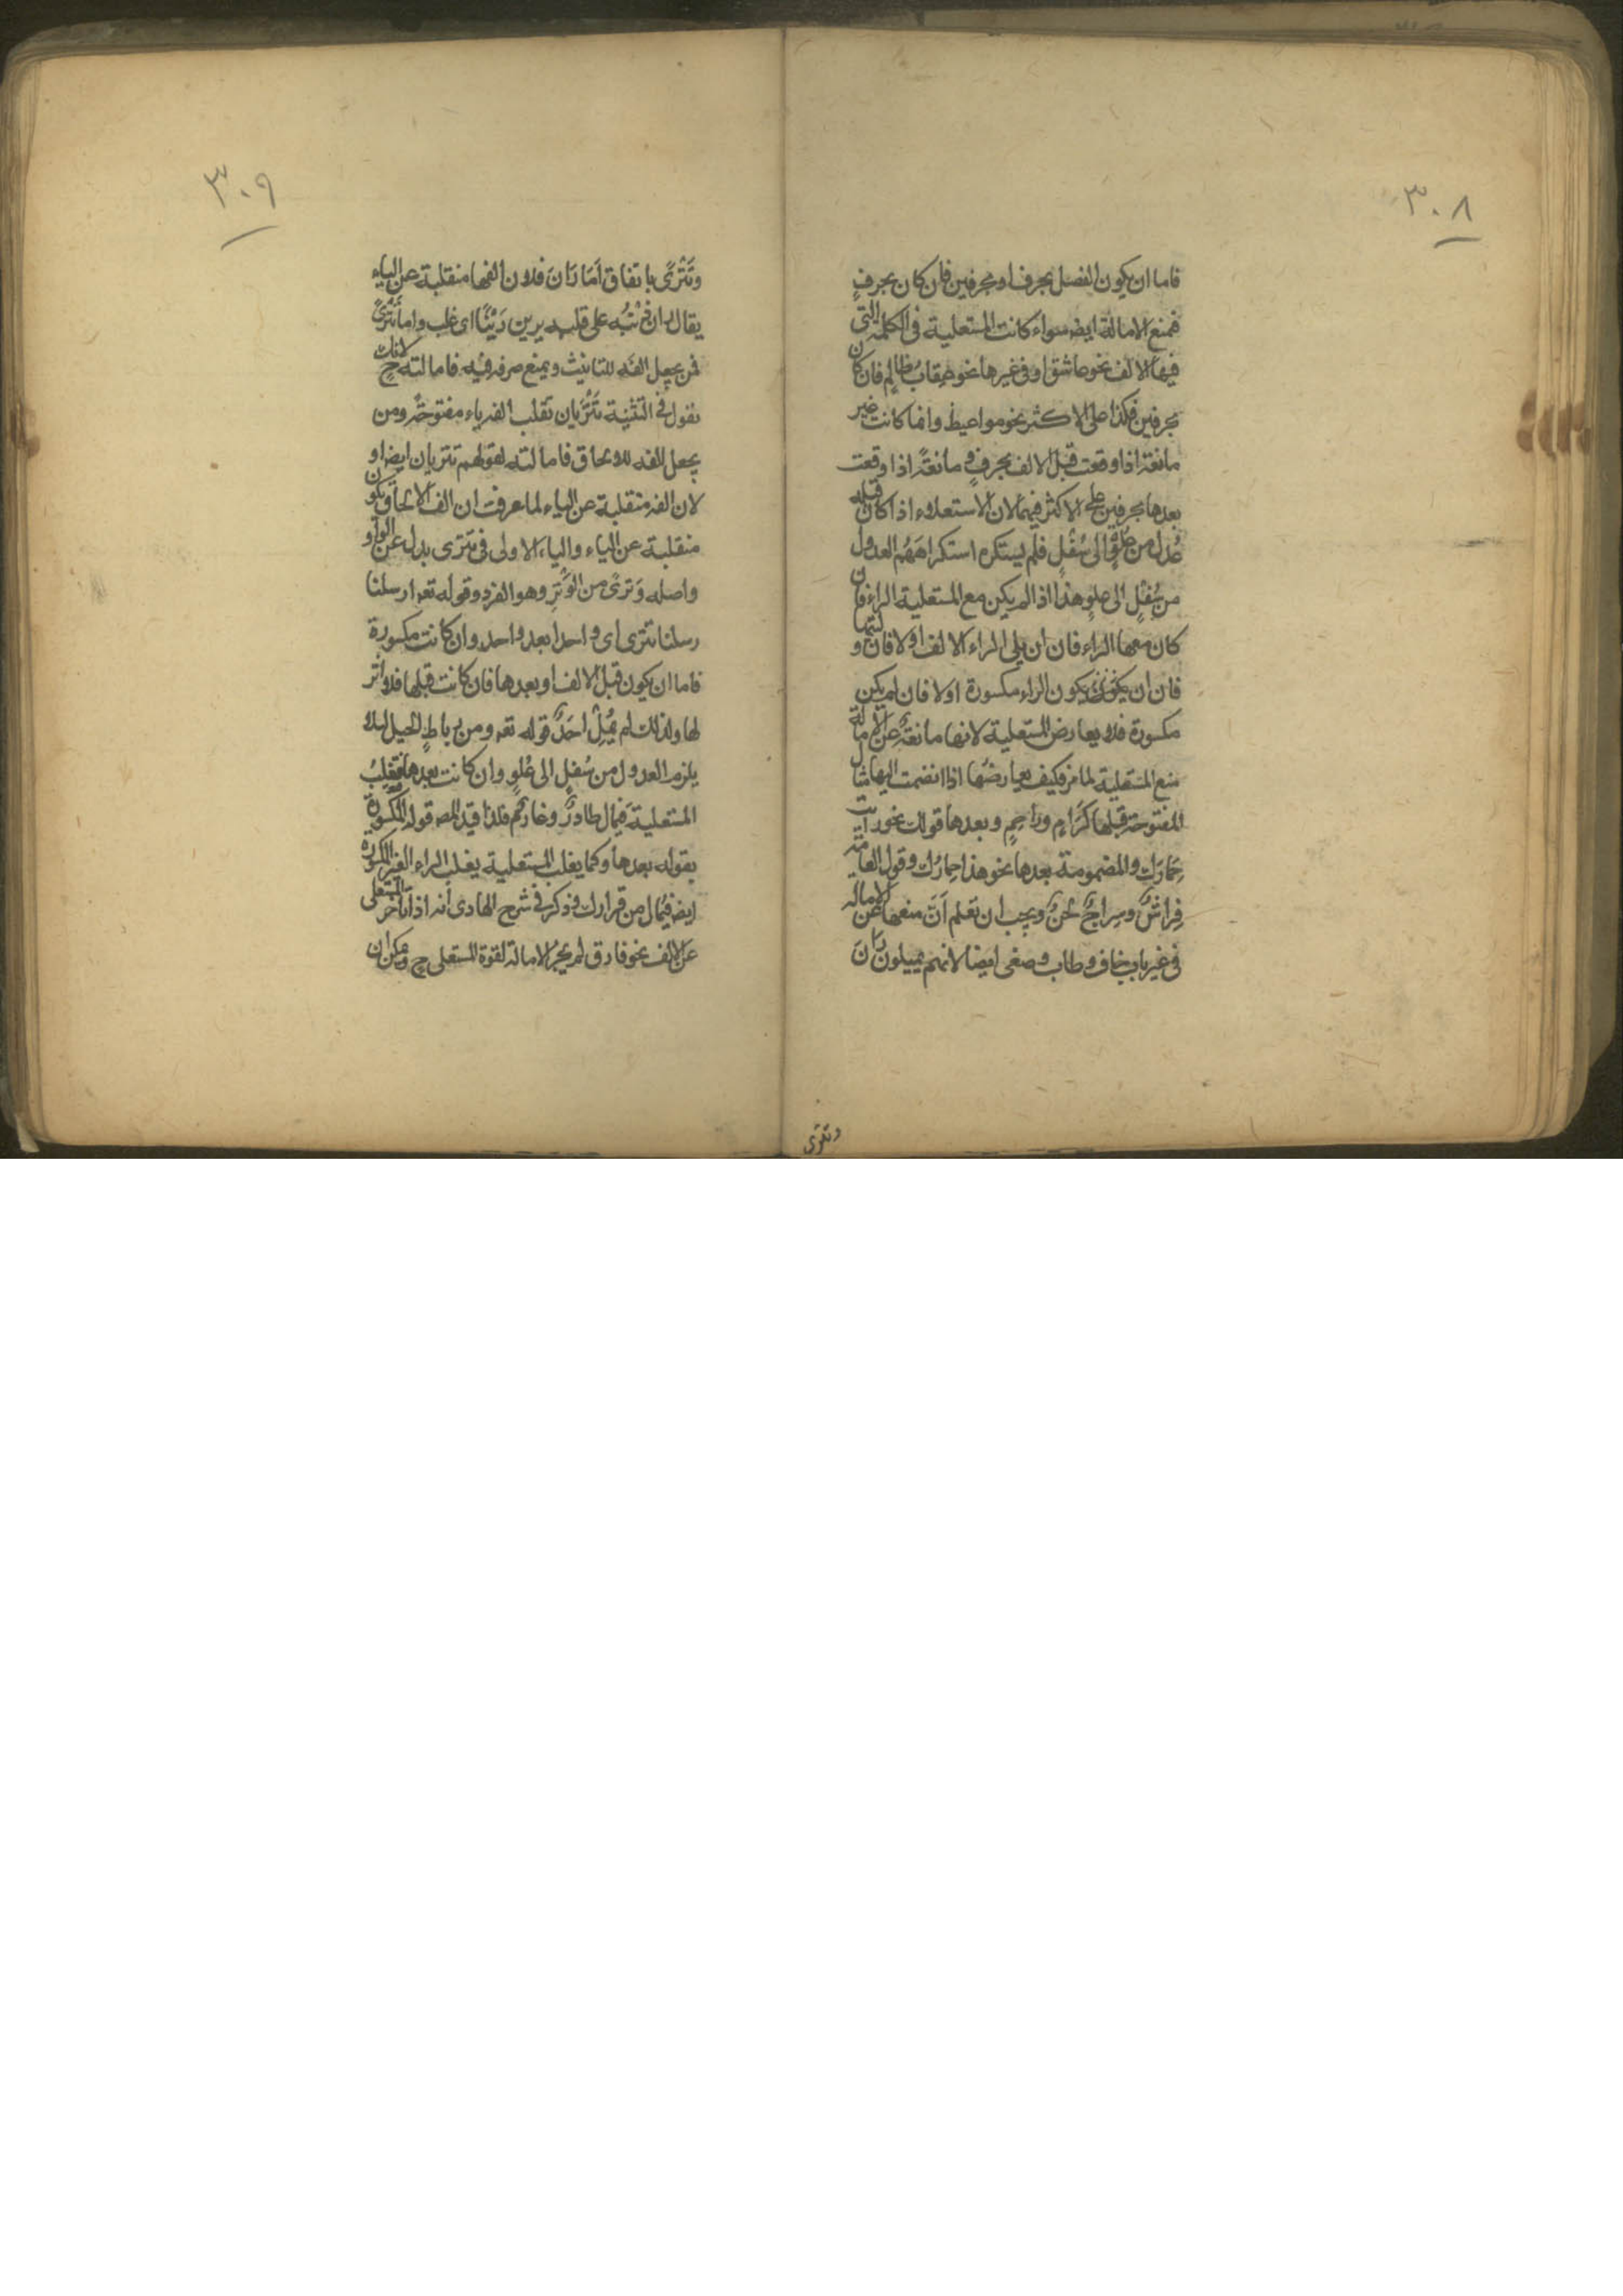 ٣٠٨
فاما ان يكون الفصل بحرف او بحرفين فان كان بحرفٍ
فمنع الامالة ايضا سواء كانت المستعلية فى الكلمة التى
فيها الالف نحو عاشق او فى غيرها نحو عقابُ ظالمٍ فان كان
بحرفين فكذا على الاكثر نحو مواعيظ وانما كانت غير
مانعة اذا وقعت قبل الالف بحرفٍ و مانعةً اذا وقعت
بعدها بحرفين على الاكثر فيهما لان الاستعلاء اذا كان قبله
عُدل من عُلوٍّ الى سُفْلٍ فلم يستكره استكراهَهُم العدول
من سُفْلٍ الى علوٍ هذا اذا لم يكن مع المستعلية الراء فان
كان معها الراء فان ان يلى الراء الالف او لا فان وليتها
فان ان يكون الراء مكسورة او لا فان لم يكن
مكسورة فلا يعارض المستعلية لانها مانعة عن الامالة
منع المستعلية لما مر فكيف يعارضُها اذا انضمت اليها مثال
المفتوحة قبلها كَرَامٍ وراحِمٍ وبعدها قولك نحو رايت
حِمَارَك والمضمومة بعدها نحو هذا حِمارُك وقول العامة
فِراشٌ وسِراجٌ لحنٌ ويجب ان تعلم اَنّ منعها عن الامالة
فى غير باب خاف وطاب وصغى ايضا لانهم يميلون رَانَ
وتترى
٣٠٩
وتَتْرًى باتفاق اَمَا رَانَ فلان الفها منقلبة عن الياء
يقال ران ذنْبُه على قلبه يرين رَيْنًا اى غلب واما تَتْرًى
فمن يجعل الفَه للتانيث ويمنع صرفه فيه فامالته ح لانك
تقول فى التثنية تَتْرَيان تقلب الفه ياء مفتوحةً ومن
يجعل الفه للالحاق فامالته لقولهم تتريان ايضا و
لان الفه منقلبة عن الياء لما عرفت ان الف الالحاق يكون
منقلبة عن الياء والياء الاولى فى تترى بدل عن الواو
واصله وَترىً من الوَتْرِ وهو الفرد وقوله تع ارسلنا
رسلنا تترى اى واحدا بعد واحد وان كانت مكسورة
فاما ان يكون قبل الالف او بعدها فان كانت قبلها فلا اثر
لها ولذلك لم يُمِلْ احَدٌ قوله تع ومن رِباطِ الخيل لئلا
يلزم العدول من سُفلٍ الى عُلوٍ وان كانت بعدها فتغلِبُ
المستعلية فيمال طارِدٌ وغارِمٌ فلذا قيد المص قوله المكسورة
بقوله بعدها وكما يغلب المستعلية يغلب الراء الغير المكسورة
ايض فيُمال من قرارك وذكر فى شرح الهادى انه اذا تأخر المستعلى
عن الالف نحو فارق لم يَجُز الامالة لقوة المستعلى ح ويمكن ان